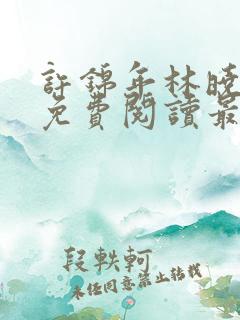 許錦年林曉
免費閱讀最
段軼軻
未經同意禁止轉載